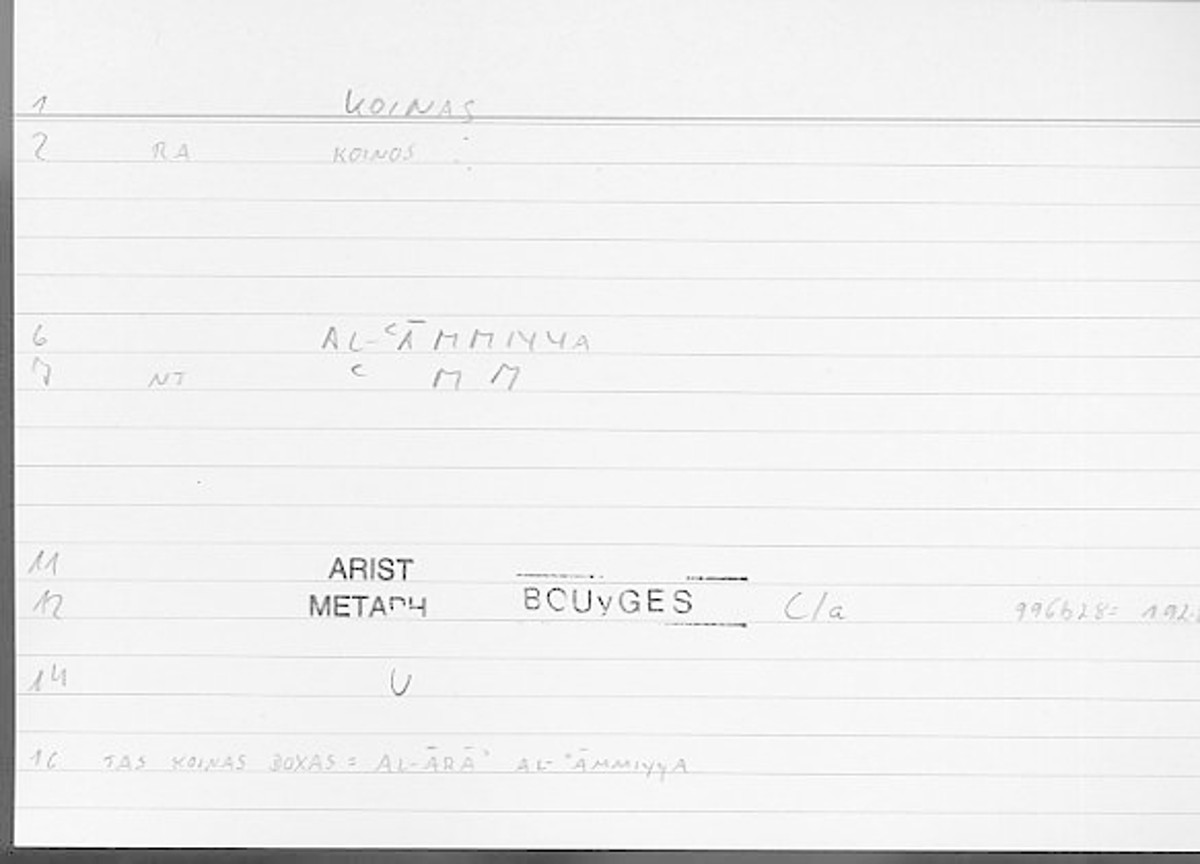 1 KOINAS
2 RA KOINOS :
6 AL-ʿĀMMIYYA
7 NT ʿ M M
11 ARIST
12 METAPH BOUyGES C/a 996b28=
14 U
16 TAS KOINAS DOXAS = AL-ĀRĀʾ AL-ʿĀMMIYYA